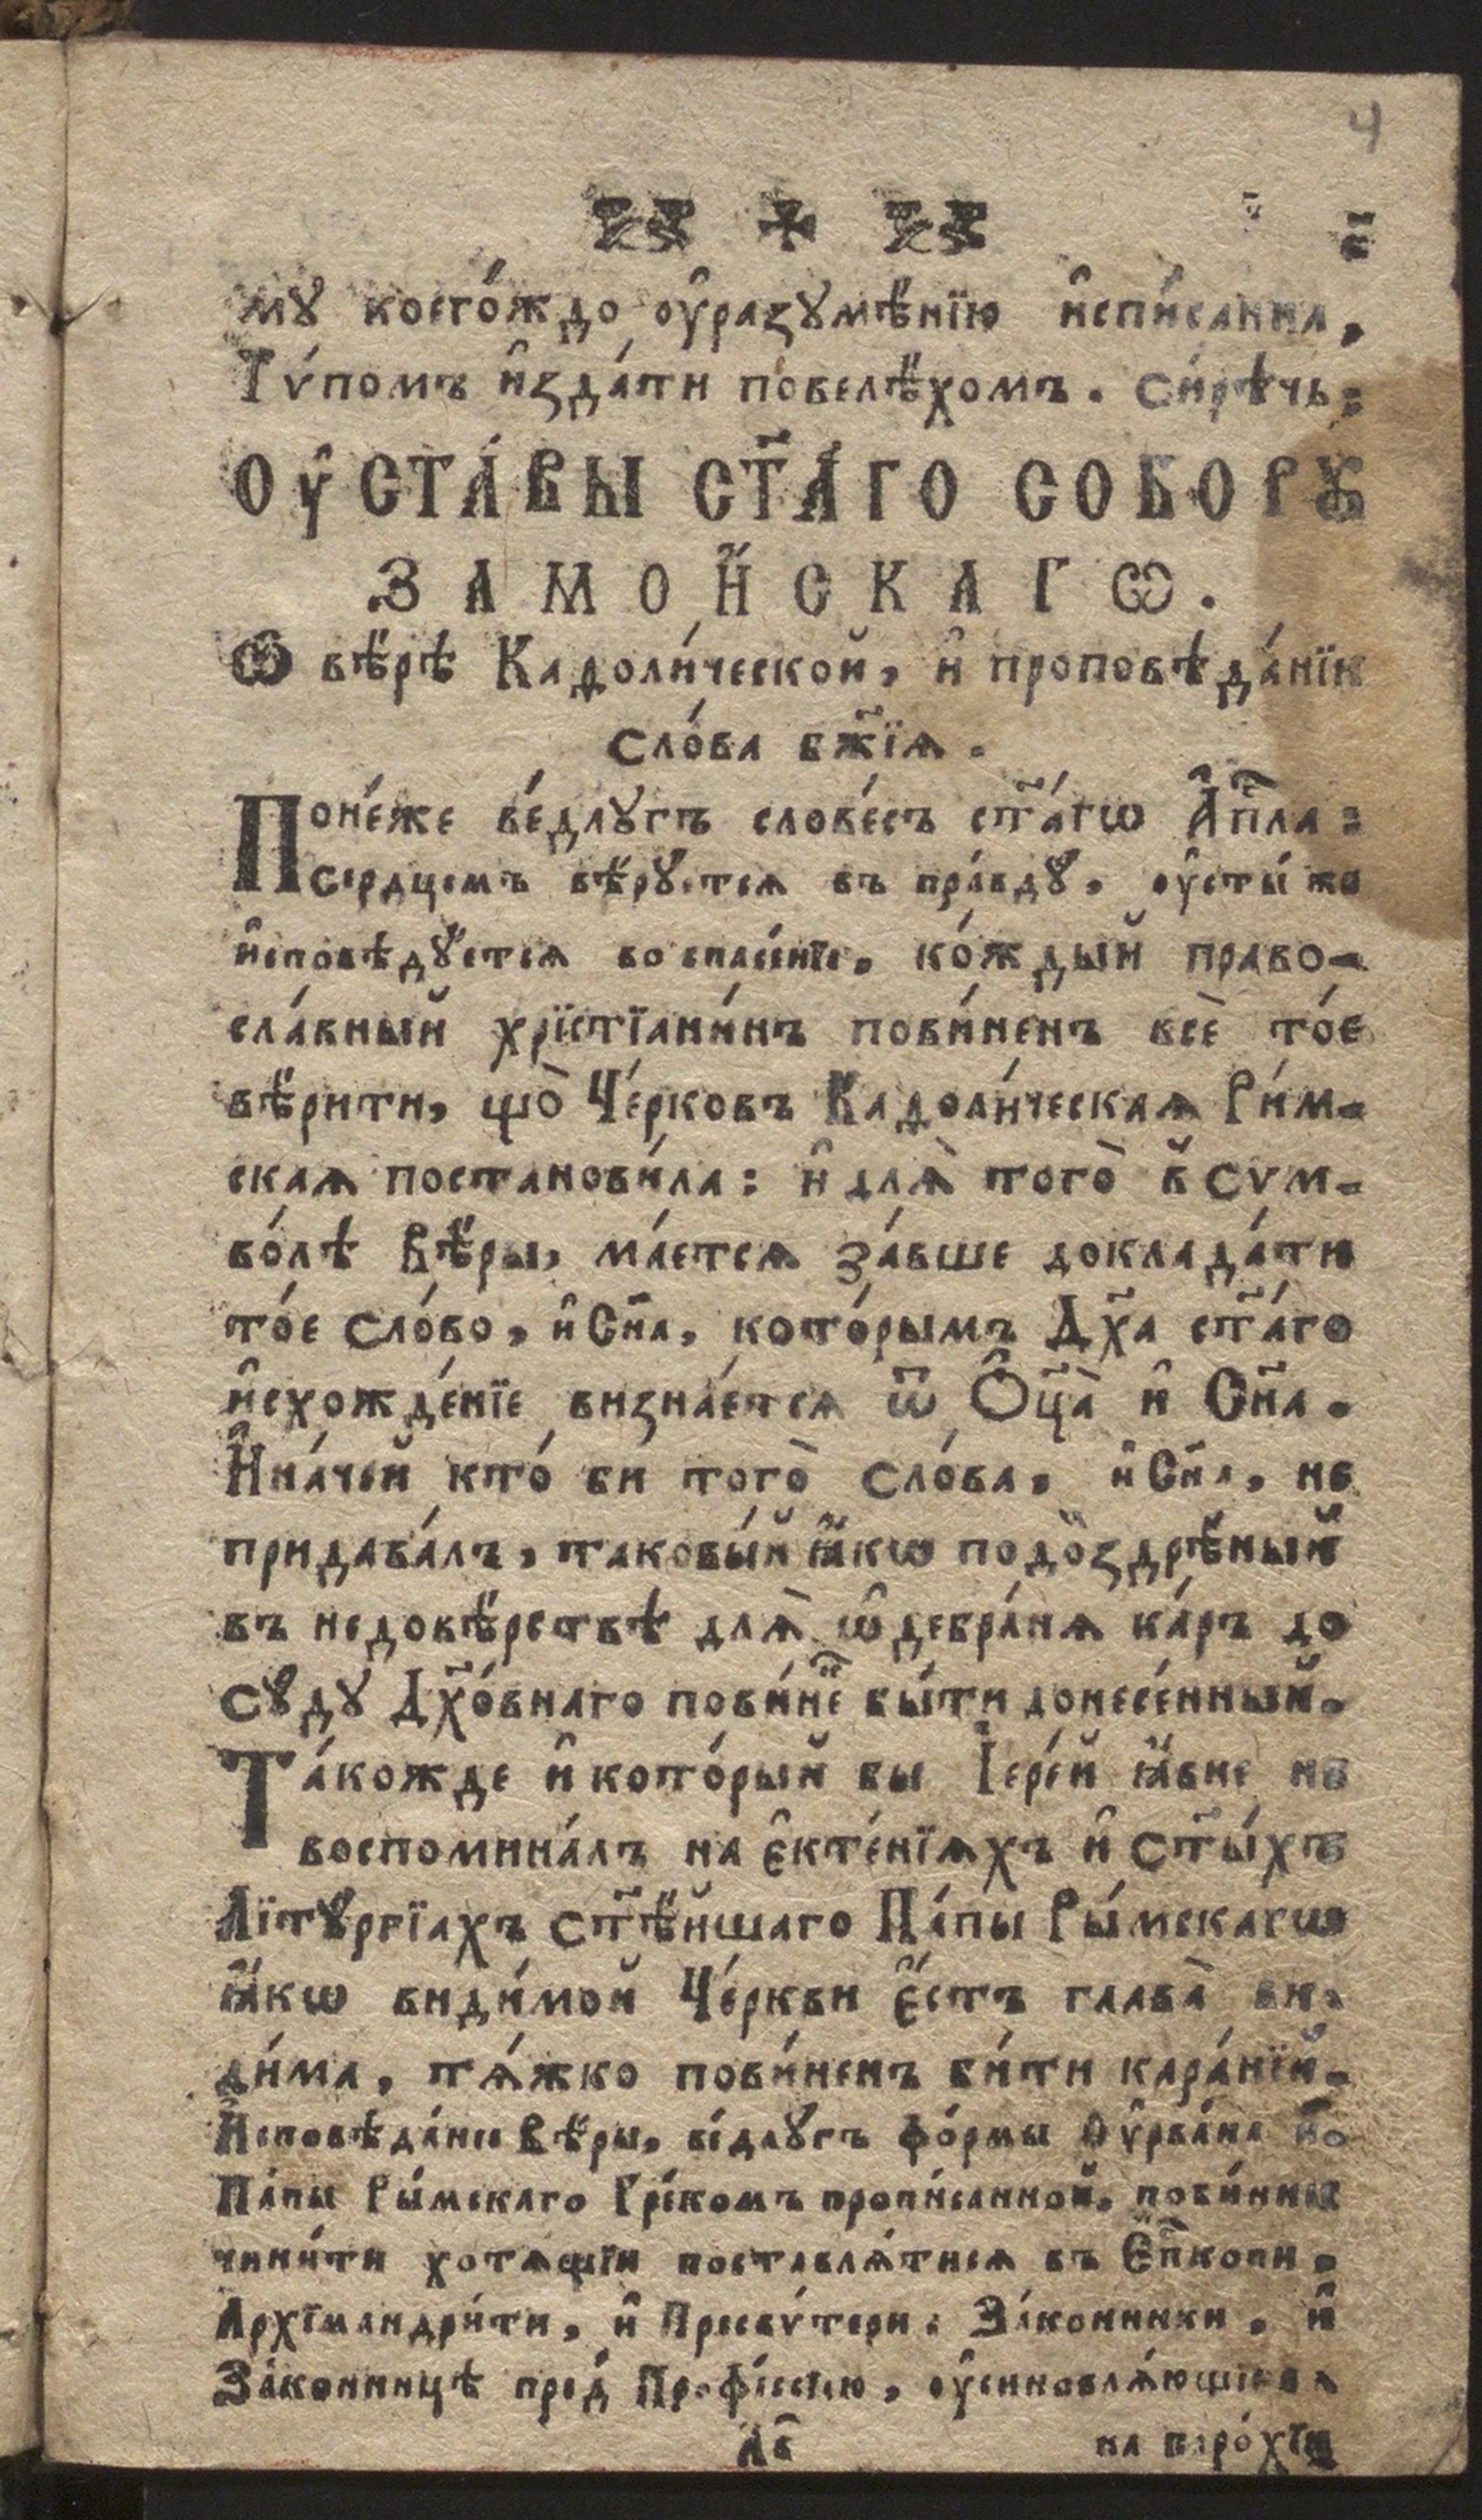 4
мꙋ коего́ждо ᲂу҆разꙋмѣ́нїю и҆спи́санна,
Тѵ́помъ и҆зда́ти повелѣ́хомъ. си́рѣчь:
ОУ҆СТА́ВЫ СТ҃А́ГО СОБОРꙊ
ЗАМО́ЙСКАГѠ.
Ѡ вѣ́рѣ Каѳоли́ческой, и҆ проповѣда́нїи
сло́ва бж҃їѧ.
Поне́же ве́длꙋгъ слове́съ ст҃а́гѡ А҆п҃ла:
сердцемъ вѣ́рꙋетсѧ въ пра́вдꙋ, ᲂу҆сты́ же
и҆сповѣдꙋ́етсѧ во спасе́нїе, ко́ждый право-
сла́вный хрїстїани́нъ пови́ненъ всѐ то́е
вѣ́рити, що̀ Че́рковъ Каѳоли́ческаѧ Ри́м-
скаѧ постанови́ла: и҆ длѧ̀ того̀ в̾ Сѵм-
во́лѣ Вѣ́ры, ма́етсѧ за́вше доклада́ти
то́е сло́во, и҆ Сн҃а, кото́рымъ Дх҃а ст҃а́го
и҆схожде́нїе визна́етсѧ ѿ Ѻ҆ц҃а̀ и҆ Сн҃а.
И҆на́чей кто́ би того̀ сло́ва, и҆ Сн҃а, не
придава́лъ, таковы́й ꙗ҆́кѡ подоздрѣ́ный
въ недовѣ́рствѣ длѧ̀ ѡ҆дебра́нѧ ка́ръ до
сꙋдꙋ Дх҃о́внаго пови́не быти донесе́нный.
Та́кожде и҆ кото́рый бы Іере́й ꙗ҆́вне не
воспомина́лъ на є҆кте́нїѧхъ и҆ ст҃ы́хъ
Лїтꙋргїахъ ст҃ѣ́йшаго Па́пы Ры́мскагѡ
ꙗ҆́кѡ види́мой Че́ркви є҆́стъ глава̀ ви-
ди́ма, тѧ́жко пови́ненъ би́ти кара́нїй.
И҆сповѣда́нїе Вѣ́ры, ве́длꙋгъ фо́рмы Оу҆рба́на
Па́пы Ры́мскаго Гре́комъ пропи́санной, пови́нни
чини́ти хотѧщїи поставлѧ́тисѧ въ Є҆п҃копи,
Архїмандри́ти, и҆ Пресвѵ́тери. За́конники, и҆
За́конницѣ пред̾ Профе́сїею, ᲂу҆синовлѧ́ющїесѧ
А҃в҃
на паро́хїи